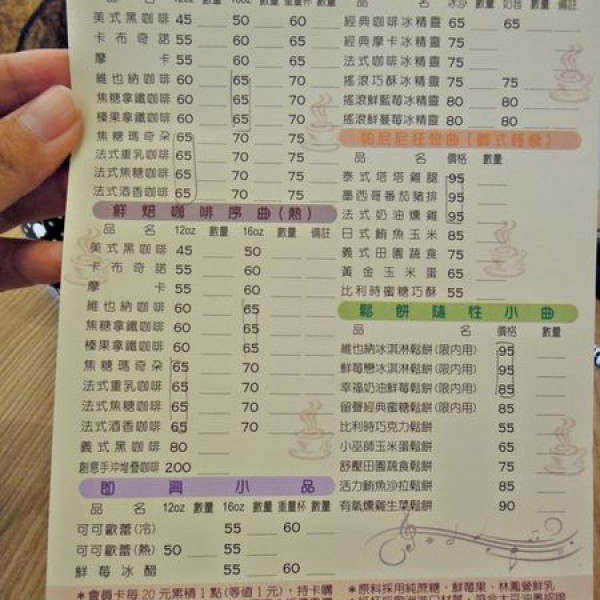 12oz 數量 16oz 數量 重量杯 數量
美式黑咖啡 45 50 60
卡布奇諾 55 60 70
摩卡 55 60 70
維也納咖啡 60 65 70
焦糖拿鐵咖啡 60 65 70
榛果拿鐵咖啡 60 65 70
焦糖瑪奇朵 65 70 75
法式重乳咖啡 65 70 75
法式焦糖咖啡 65 70 75
法式酒香咖啡 65 70 75
鮮焙咖啡序曲(熱)
品名 12oz 數量 16oz 數量 備註
美式黑咖啡 45 50
卡布奇諾 55 60
摩卡 55 60
維也納咖啡 60 65
焦糖拿鐵咖啡 60 65
榛果拿鐵咖啡 60 65
焦糖瑪奇朵 65 70
法式重乳咖啡 65 70
法式焦糖咖啡 65 70
法式酒香咖啡 65 70
義式黑咖啡 80
創意手沖堆疊咖啡 200
即興小品
品名 12oz 數量 16oz 數量 重量杯 數量
可可歐蕾(冷) 55 60
可可歐蕾(熱) 50 55
鮮莓冰醋 55 60
*會員卡每20元累積1點(等值1元),持卡購
品名 冰沙 數量 奶昔 數量 備註
經典咖啡冰精靈 65 65
經典摩卡冰精靈 75
法式咖啡冰精靈 75
搖滾巧酥冰精靈 75 75
搖滾鮮藍莓冰精靈 80 80
搖滾鮮蔓莓冰精靈 80 80
帕尼尼狂想曲(義式輕食)
品名 價格 數量
泰式塔塔雞腿 95
墨西哥番茄豬排 95
法式奶油燻雞 95
日式鮪魚玉米 85
義式田園蔬食 75
黃金玉米蛋 65
比利時蜜糖巧酥 55
鬆餅隨性小曲
品名 價格 數量
維也納冰淇淋鬆餅(限內用) 95
鮮莓戀冰淇淋鬆餅(限內用) 95
幸福奶油鮮莓鬆餅(限內用) 85
留聲經典蜜糖鬆餅(限內用) 85
比利時巧克力鬆餅 55
小巫師玉米蛋鬆餅 65
舒壓田園蔬食鬆餅 75
活力鮪魚沙拉鬆餅 85
有氧燻雞生菜鬆餅 90
*原料採用純蔗糖、鮮莓果、林鳳營鮮乳